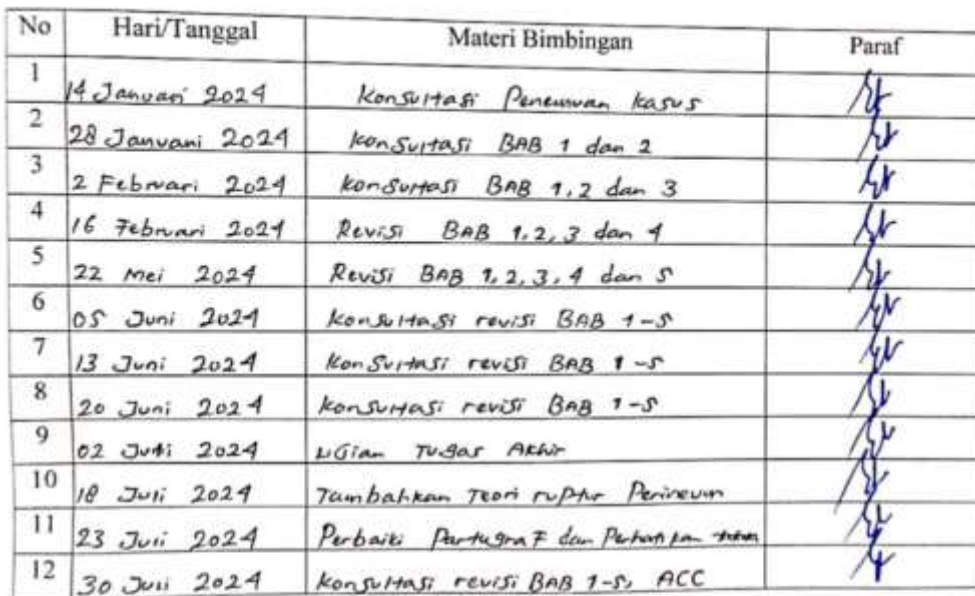 No Hari/Tanggal Materi Bimbingan Paraf
1 14 Januari 2024 Konsultasi Penemuan kasus
2 28 Januari 2024 Konsultasi BAB 1 dan 2
3 2 Februari 2024 Konsultasi BAB 1,2 dan 3
4 16 Februari 2024 Revisi BAB 1,2,3 dan 4
5 22 Mei 2024 Revisi BAB 1,2,3,4 dan 5
6 05 Juni 2024 Konsultasi revisi BAB 1-5
7 13 Juni 2024 Konsultasi revisi BAB 1-5
8 20 Juni 2024 Konsultasi revisi BAB 1-5
9 02 Juli 2024 UGian Tugas Akhir
10 18 Juli 2024 Tambahkan Teori ruptur Perineum
11 23 Juli 2024 Perbaiki Partugraf dan Perhatikan
12 30 Juli 2024 Konsultasi revisi BAB 1-5, ACC